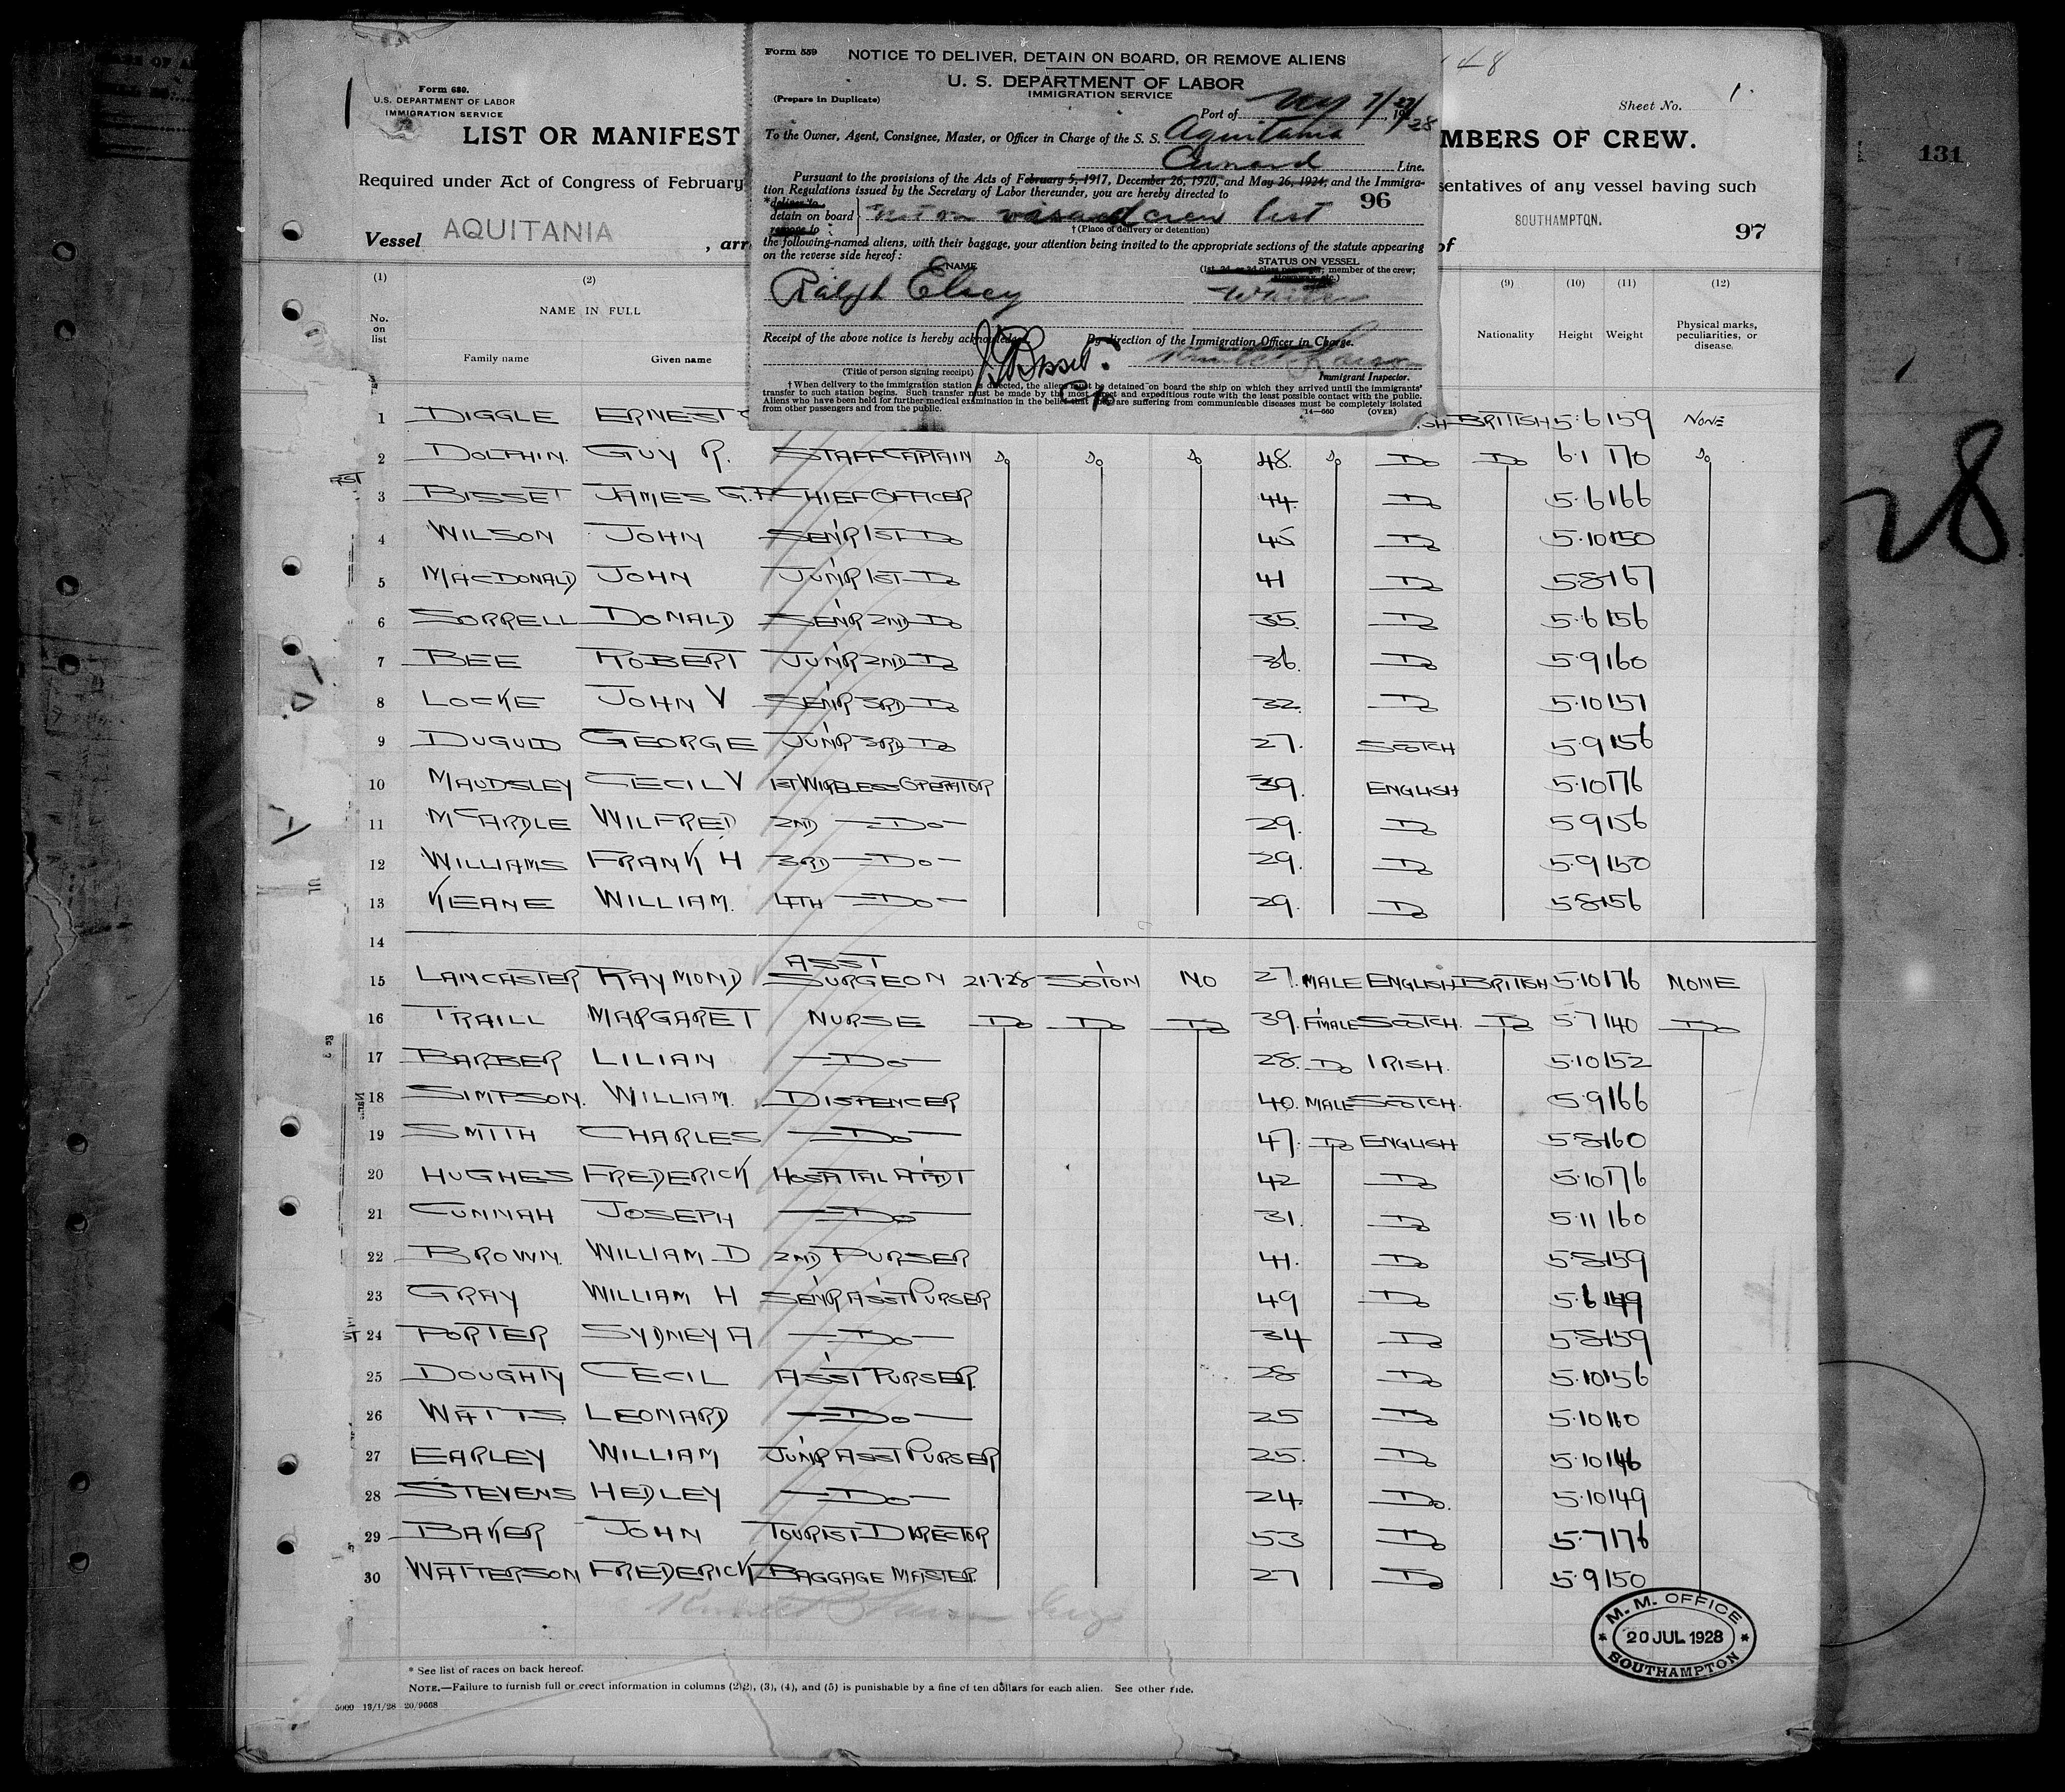 Form 680.
U.S. DEPARTMENT OF LABOR
IMMIGRATION SERVICE
LIST OR MANIFEST
Required under Act of Congress of February
Vessel AQUITANIA , arr
Form 559
NOTICE TO DELIVER, DETAIN ON BOARD, OR REMOVE ALIENS
U. S. DEPARTMENT OF LABOR
IMMIGRATION SERVICE
(Prepare in Duplicate)
Port of NY 7/27/1928
To the Owner, Agent, Consignee, Master, or Officer in Charge of the S. S. Aquitania
Cunard Line.
Pursuant to the provisions of the Acts of February 5, 1917, December 26, 1920, and May 26, 1924, and the Immigra-
tion Regulations issued by the Secretary of Labor thereunder, you are hereby directed to
*deliver to
detain on board
remove to
Not on visaed crew list 96
† (Place of delivery or detention)
the following-named aliens, with their baggage, your attention being invited to the appropriate sections of the statute appearing
on the reverse side hereof:
NAME
STATUS ON VESSEL
(1st, 2d, or 3d class passenger; member of the crew;
stowaway, etc.)
Ralph Elsey Waiter
Receipt of the above notice is hereby acknowledged.
By direction of the Immigration Officer in Charge.
J G Bisset
(Title of person signing receipt)
Immigrant Inspector.
† When delivery to the immigration station is directed, the aliens must be detained on board the ship on which they arrived until the immigrants'
transfer to such station begins. Such transfer must be made by the most direct and expeditious route with the least possible contact with the public.
Aliens who have been held for further medical examination in the belief that they are suffering from communicable diseases must be completely isolated
from other passengers and from the public.
14—660 (OVER)
48
Sheet No. 1.
MBERS OF CREW.
sentatives of any vessel having such
SOUTHAMPTON.
of
97
131
28
(1) (2) (9) (10) (11) (12)
No. on list
NAME IN FULL
Family name Given name
Nationality Height Weight Physical marks, peculiarities, or disease.
1 DIGGLE ERNEST SH BRITISH 5·6 159 NONE
2 DOLPHIN. GUY R. STAFF CAPTAIN Do Do Do 48. Do Do Do 6·1 170 Do
3 BISSET JAMES G.P. CHIEF OFFICER 44. Do 5·6 166
4 WILSON JOHN SEN'R 1ST Do 45 Do 5·10 150
5 MACDONALD JOHN JUN'R 1ST Do 41 Do 5·8 167
6 SORRELL DONALD SEN'R 2ND Do 35. Do 5·6 156
7 BEE ROBERT JUN'R 2ND Do 36. Do 5·9 160
8 LOCKE JOHN V SEN'R 3RD Do 32. Do 5·10 151
9 DUGUID GEORGE JUN'R 3RD Do 27. SCOTCH 5·9 156
10 MAUDSLEY CECIL V 1ST WIRELESS OPERATOR 39. ENGLISH 5·10 176
11 McARDLE WILFRED 2ND Do 29. Do 5·9 156
12 WILLIAMS FRANK H 3RD Do 29. Do 5·9 150
13 KEANE WILLIAM. 4TH Do 29. Do 5·8 156
14
15 LANCASTER RAYMOND ASST SURGEON 21·7·28 SO'TON NO 27. MALE ENGLISH BRITISH 5·10 176 NONE
16 TRAILL MARGARET NURSE Do Do Do 39. F'MALE SCOTCH. Do 5·7 140 Do
17 BARBER LILIAN Do 28. Do IRISH. 5·10 152
18 SIMPSON. WILLIAM. DISPENCER 40. MALE SCOTCH. 5·9 166
19 SMITH CHARLES Do 47. Do ENGLISH 5·8 160
20 HUGHES FREDERICK HOSPITAL ATT'DT 42 Do 5·10 176
21 CUNNAH JOSEPH Do 31. Do 5·11 160
22 BROWN. WILLIAM D 2ND PURSER 41. Do 5·8 159
23 GRAY WILLIAM H SEN'R ASS'T PURSER 49 Do 5·6 149
24 PORTER SYDNEY A Do 34 Do 5·8 159
25 DOUGHTY CECIL ASS'T PURSER. 28 Do 5·10 156
26 WATTS LEONARD Do 25 Do 5·10 160
27 EARLEY WILLIAM JUN'R ASST PURSER 25. Do 5·10 146
28 STEVENS HEDLEY Do 24. Do. 5·10 149
29 BAKER JOHN TOURIST DIRECTOR 53 Do 5·7 176
30 WATTERSON FREDERICK BAGGAGE MASTER. 27 Do 5·9 150
M. M. OFFICE
* 20 JUL 1928 *
SOUTHAMPTON
* See list of races on back hereof.
NOTE.—Failure to furnish full or correct information in columns (2), (3), (4), and (5) is punishable by a fine of ten dollars for each alien. See other side.
5000 13/1/28 20/9668